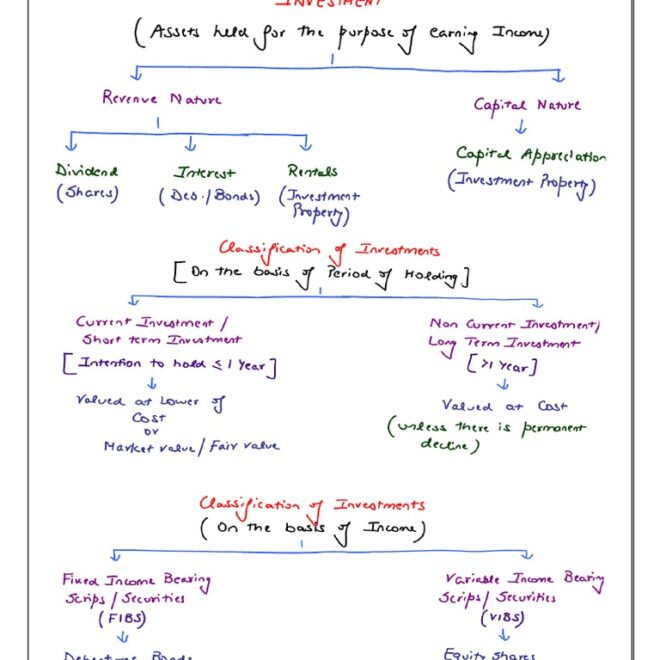 INVESTMENT
(Assets held for the purpose of earning Income)
Revenue Nature
Capital Nature
Dividend
(Shares)
Interest
(Deb./Bonds)
Rentals
(Investment
Property)
Capital Appreciation
(Investment Property)
Classification of Investments
[On the basis of Period of Holding]
Current Investment/
Short term Investment
[Intention to hold ≤ 1 Year]
Valued at Lower of
Cost
or
Market value/Fair value
Non Current Investment/
Long Term Investment
[>1 Year]
Valued at Cost
(unless there is permanent
decline)
Classification of Investments
(On the basis of Income)
Fixed Income Bearing
Scrips/Securities
(FIBS)
Debentures, Bonds
Variable Income Bearing
Scrips/Securities
(VIBS)
Equity Shares